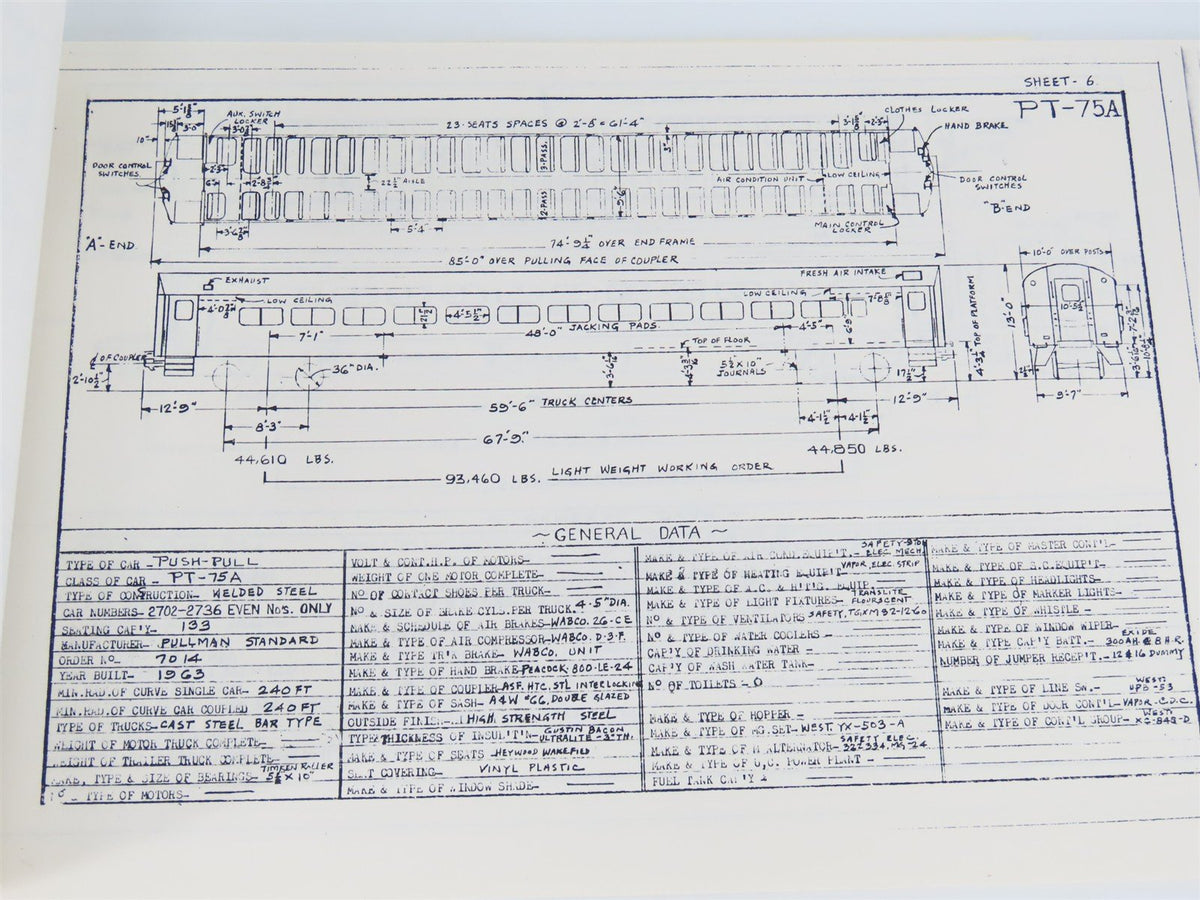 SHEET - 6
PT-75A
5'-1⅛"
AUX. SWITCH LOCKER
23 SEATS SPACES @ 2'-8" = 61'-4"
CLOTHES LOCKER
HAND BRAKE
10"
DOOR CONTROL SWITCHES
22½" AISLE
3-PASS.
2-PASS
9'-6"
AIR CONDITION UNIT
LOW CEILING
DOOR CONTROL SWITCHES
"B"-END
MAIN CONTROL LOCKER
5'-4"
"A"-END
74'-9½" OVER END FRAME
85'-0" OVER PULLING FACE OF COUPLER
10'-0" OVER POSTS
EXHAUST
FRESH AIR INTAKE
LOW CEILING
LOW CEILING
7'-1"
48'-0" JACKING PADS.
4'-5"
6'-9"
13'-0"
TOP OF PLATFORM
TOP OF FLOOR
OF COUPLER
2'-10½"
36" DIA.
5½ X 10" JOURNALS
17½"
9'-7"
12'-9"
59'-6" TRUCK CENTERS
12'-9"
8'-3"
4'-1½"
4'-1½"
67'-9"
44,610 LBS.
44,850 LBS.
93,460 LBS. LIGHT WEIGHT WORKING ORDER
~GENERAL DATA~
TYPE OF CAR - PUSH-PULL
CLASS OF CAR - PT-75A
TYPE OF CONSTRUCTION- WELDED STEEL
CAR NUMBERS- 2702-2736 EVEN NOS. ONLY
SEATING CAP'Y- 133
MANUFACTURER- PULLMAN STANDARD
ORDER NO- 7014
YEAR BUILT- 1963
MIN.RAD.OF CURVE SINGLE CAR- 240 FT
MIN.RAD.OF CURVE CAR COUPLED 240 FT
TYPE OF TRUCKS- CAST STEEL BAR TYPE
WEIGHT OF MOTOR TRUCK COMPLETE-
WEIGHT OF TRAILER TRUCK COMPLETE-
MAKE, TYPE & SIZE OF BEARINGS- TIMKEN ROLLER 5½ X 10"
TYPE OF MOTORS-
VOLT & CONT.H.P. OF MOTORS-
WEIGHT OF ONE MOTOR COMPLETE-
NO OF CONTACT SHOES PER TRUCK-
NO & SIZE OF BRAKE CYLS.PER TRUCK. 4-5" DIA.
MAKE & SCHEDULE OF AIR BRAKES- WABCO. 26-CE
MAKE & TYPE OF AIR COMPRESSOR- WABCO. D-3-F
MAKE & TYPE TR'K BRAKE- WABCO, UNIT
MAKE & TYPE OF HAND BRAKE- PEACOCK. 800-LE-24
MAKE & TYPE OF COUPLER- ASF. HTC. STL INTERLOCKING
MAKE & TYPE OF SASH- A&W #66, DOUBLE GLAZED
OUTSIDE FINISH- HIGH STRENGTH STEEL
TYPE & THICKNESS OF INSUL'T'N- GUSTIN BACON ULTRALITE-3" TH.
MAKE & TYPE OF SEATS HEYWOOD WAKEFIELD
SEAT COVERING- VINYL PLASTIC
MAKE & TYPE OF WINDOW SHADE-
MAKE & TYPE OF AIR COND.EQUIP'T.- ELEC. MECH.
MAKE & TYPE OF HEATING EQUIP'T VAPOR, ELEC. STRIP
MAKE & TYPE OF A.C. & HT'G. EQUIP.
MAKE & TYPE OF LIGHT FIXTURES- TRANSLITE FLOURSCENT
NO & TYPE OF VENTILATORS SAFETY, TGXM 82-12-60
NO & TYPE OF WATER COOLERS -
CAP'Y OF DRINKING WATER -
CAP'Y OF WASH WATER TANK-
NO OF TOILETS - 0
MAKE & TYPE OF HOPPER -
MAKE & TYPE OF MG.SET- WEST. YX-503-A
MAKE & TYPE OF ALTERNATOR- SAFETY ELEC.
MAKE & TYPE OF POWER PLANT -
FUEL TANK CAP'Y
MAKE & TYPE OF MASTER CONT'L-
MAKE & TYPE OF S.C.EQUIP'T-
MAKE & TYPE OF HEADLIGHTS-
MAKE & TYPE OF MARKER LIGHTS-
MAKE & TYPE OF WHISTLE -
MAKE & TYPE OF WINDOW WIPER-
MAKE & TYPE CAP'Y BATT.- EXIDE 300 AH. @ 8 H-R.
NUMBER OF JUMPER RECEP'T.- 12 & 16 DUMMY
MAKE & TYPE OF LINE SW.-
MAKE & TYPE OF DOOR CONT'L- VAPOR-C.D.C.
MAKE & TYPE OF CONT'L GROUP-